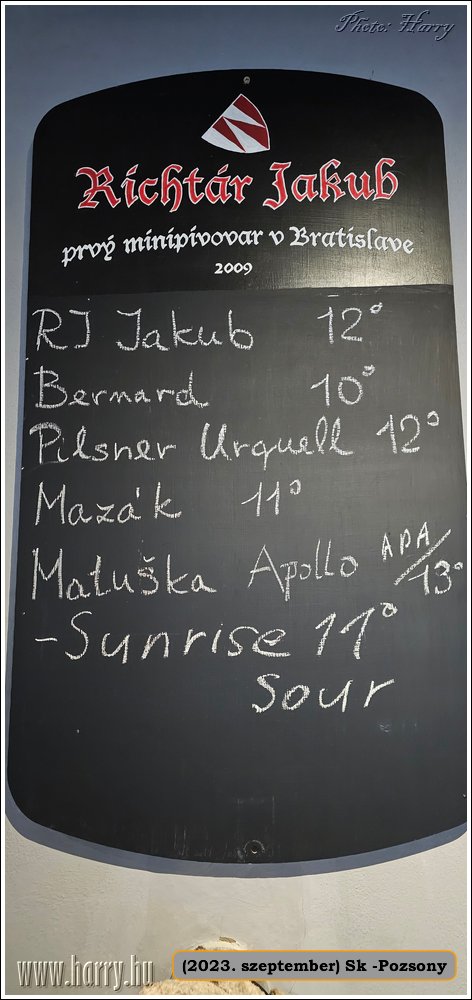 Photo: Harry
Richtár Jakub
prvý minipivovar v Bratislave
2009
RJ Jakub 12°
Bernard 10°
Pilsner Urquell 12°
Mazák 11°
Matuška Apollo APA/13°
-Sunrise 11°
Sour
www.harry.hu
(2023. szeptember) Sk -Pozsony